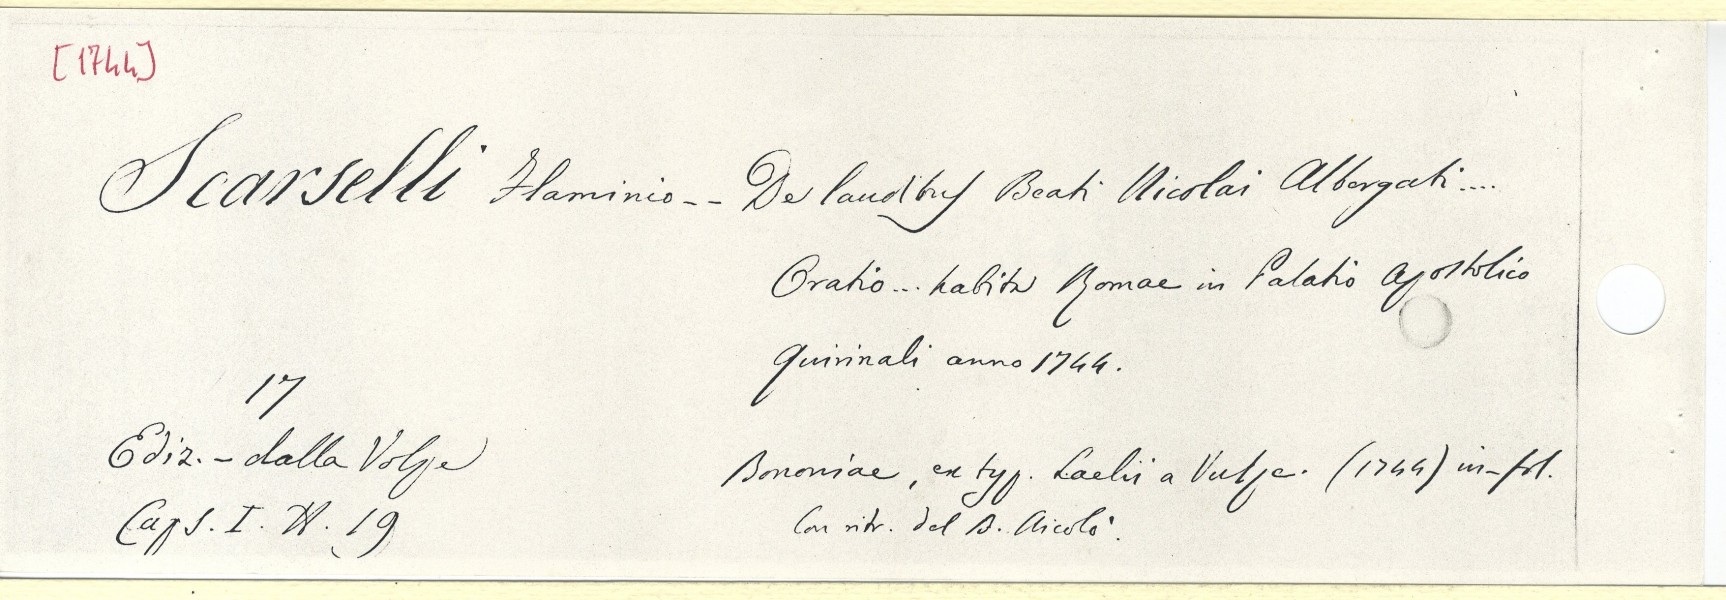 [1744]
Scarselli Flaminio -- De laudibus Beati Nicolai Albergati....
Oratio... habita Romae in Palatio Apostolico
Quirinali anno 1744.
17
Ediz. - dalla Volpe
Bononiae, ex typ. Laelii a Vulpe. (1744) in-fol.
Caps. I. N. 19
Con ritr. del B. Nicolò.